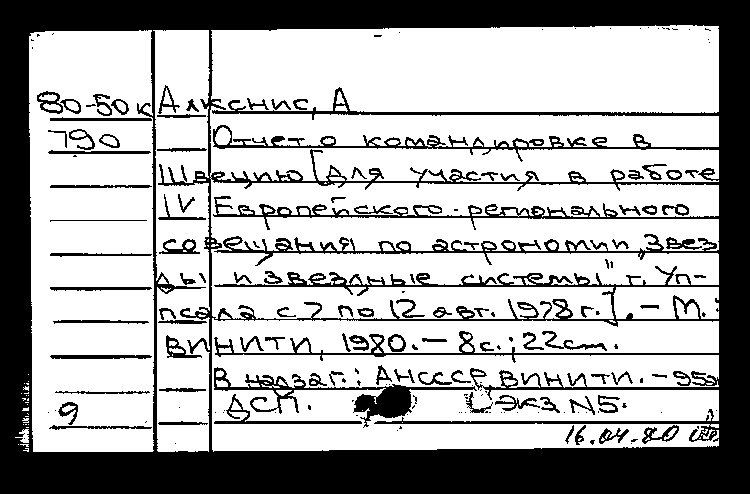 80-50к Алкснис, А
790 Отчет о командировке в
Швецию [для участия в работе
IV Европейского регионального
совещания по астрономии „Звез
ды и звездные системы" г. Уп-
псала с 7 по 12 авг. 1978 г.]. – М.:
ВИНИТИ, 1980. – 8с.; 22см.
В надзаг.: АН СССР, ВИНИТИ. –
9 ДСП. ЭКЗ N5.
16.04.80